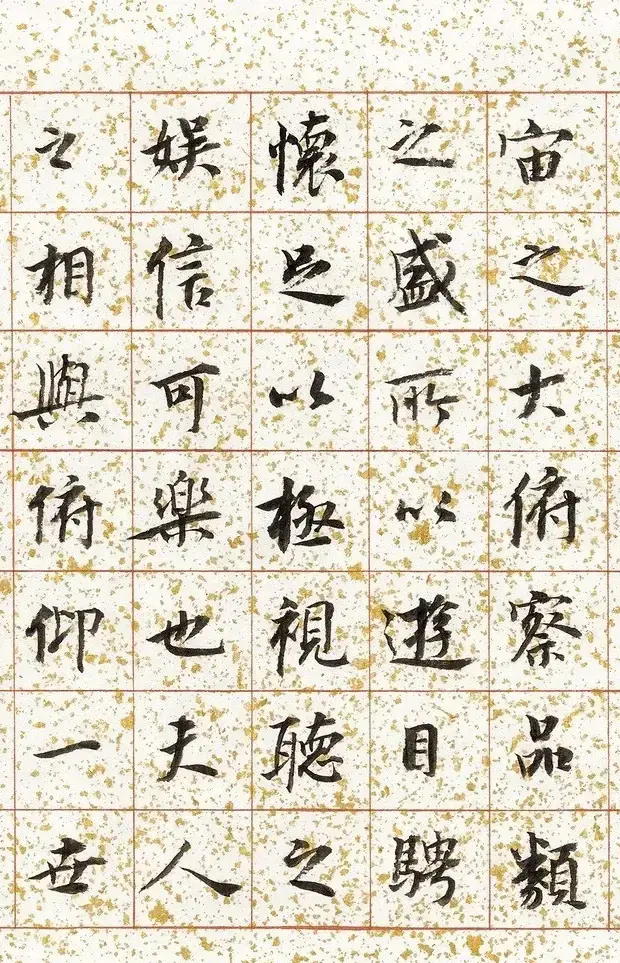 宙之大俯察品類
之盛所以遊目騁
懷足以極視聽之
娛信可樂也夫人
之相與俯仰一世